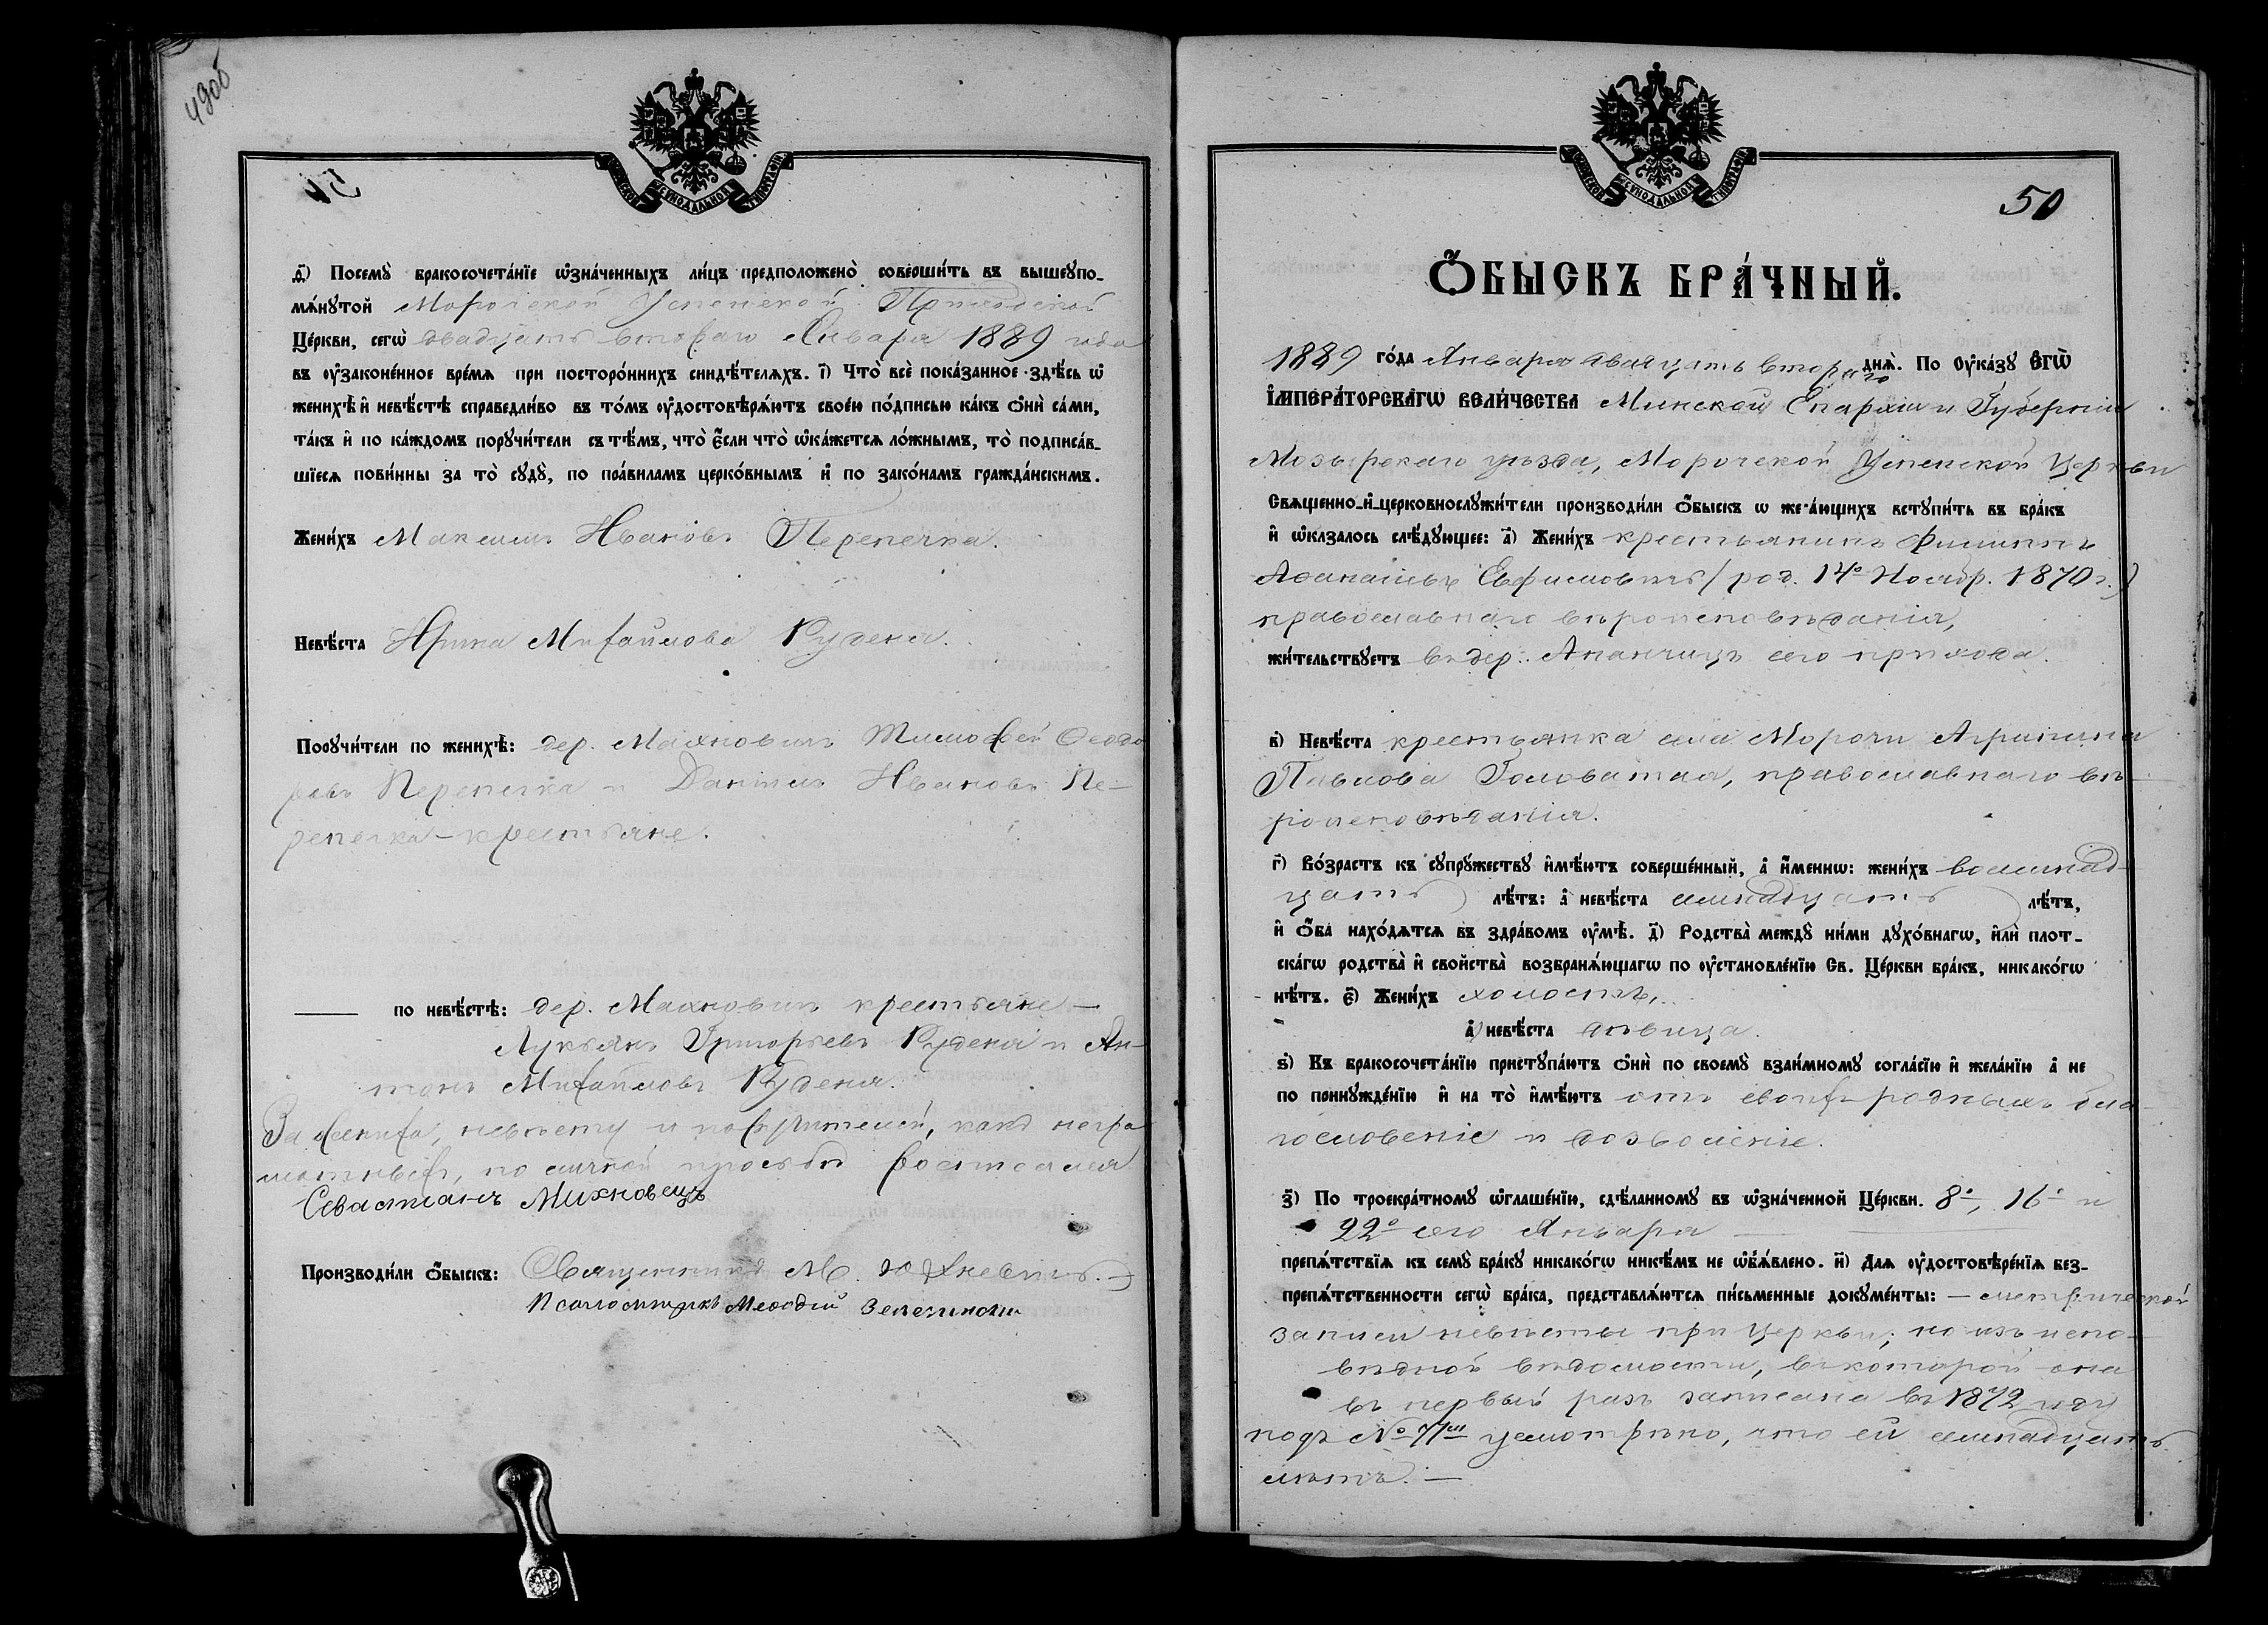 49об
МОСКОВСКОЙ СѴНОДАЛЬНОЙ ТИПОГРАФІИ
ѳ҃) Посемꙋ̀ бракосочета́нїе ѡ҆зна́ченныхъ ли́цъ предположено̀ соверши́ть въ вышеꙋпо-
мѧ́нꙋтой Морочской Успенской Приходской
Це́ркви, сегѡ̀ двадцать втораго Января 1889 года
въ ᲂу҆зако́ненное вре́мѧ при посторо́ннихъ свидѣ́телѧхъ. і҃) Что̀ всѐ пока́занное здѣ́сь ѡ҆
женихѣ̀ и҆ невѣ́стѣ справедли́во въ то́мъ ᲂу҆достовѣрѧ́ютъ свое́ю по́дписью ка́къ ѻ҆нѝ са́ми,
та́къ и҆ по ка́ждомъ порꙋчи́тели съ тѣ́мъ, что̀ є҆́сли что̀ ѡ҆ка́жетсѧ ло́жнымъ, то̀ подписа́в-
шїесѧ пови́нны за то̀ сꙋдꙋ̀, по пра́виламъ церко́внымъ и҆ по зако́намъ гражда́нскимъ.
Жени́хъ Максимъ Ивановъ Перепечка.
Невѣ́ста Ирина Михайлова Руденя.
Порꙋчи́тели по женихѣ̀: дер. Махновичъ Тимофей Феодо
ровъ Перепечка и Даніилъ Ивановъ Пе-
репечка – крестьяне.
по невѣ́стѣ: дер. Махновичъ крестьяне –
Лукьянъ Григорьевъ Руденя и Ан-
тонъ Михайловъ Руденя.
За жениха, невѣсту и поручителей, какъ негра
мотныхъ, по личной просьбѣ росписался
Севастіанъ Михновецъ
Производи́ли ѻ҆́быскъ: Священникъ М. Юхневичъ.
Псаломщикъ Меѳодій
МОСКОВСКОЙ СѴНОДАЛЬНОЙ ТИПОГРАФІИ
50
Ѻ҆́БЫСКЪ БРА́ЧНЫЙ.
1889 го́да Января двадцать втораго днѧ̀. По Оу҆ка́зꙋ Є҆ГѠ̀
І҆МПЕРА́ТОРСКАГѠ ВЕЛИ́ЧЕСТВА Минской Епархіи и Губерніи
Мозырскаго уѣзда, Морочской Успенской Церкви
Свѧщенно-и҆-церковнослꙋжи́тели производи́ли ѻ҆́быскъ ѡ жела́ющихъ встꙋпи́ть въ бра́къ
и҆ ѡ҆каза́лось слѣ́дꙋющее: а҃) Жени́хъ крестьянинъ Филиппъ
Аѳанасіевъ Евфимовичъ (род. 14го Ноябр. 1870 г.)
православнаго вѣроисповѣданія,
жи́тельствꙋетъ въ дер. Ананчицъ сего прихода.
в҃) Невѣ́ста крестьянка села Морочи Агрипина
Павлова Головатая, православнаго вѣ-
роисповѣданія.
г҃) Во́зрастъ къ сꙋпрꙋ́жествꙋ и҆мѣ́ютъ соверше́нный, а҆ и҆́меннѡ: жени́хъ восемнад-
цать лѣ́тъ: а҆ невѣ́ста семнадцать лѣ́тъ,
и҆ ѻ҆́ба нахо́дѧтсѧ въ здра́вомъ ᲂу҆мѣ̀. д҃) Родства̀ междꙋ̀ ни́ми дꙋхо́внагѡ, и҆лѝ плот-
ска́гѡ родства̀ и҆ сво́йства̀ возбранѧ́ющагѡ по ᲂу҆становле́нїю Св. Це́ркви бра́къ, никако́гѡ
нѣ́тъ. є҃) Жени́хъ холостъ,
а҆ невѣ́ста дѣвица.
ѕ҃) Къ бракосочета́нїю пристꙋпа́ютъ ѻ҆нѝ по своемꙋ̀ взаи́мномꙋ согла́сїю и҆ жела́нїю а҆ не
по принꙋжде́нїю и҆ на то̀ и҆мѣ́ютъ отъ своихъ родныхъ бла-
гословеніе и дозволеніе.
з҃) По троекра́тномꙋ ѡ҆глаше́нїю, сдѣ́ланномꙋ въ ѡ҆зна́ченной Це́ркви. 8го, 16го и
22го сего Января
препѧ́тствїѧ къ семꙋ̀ бра́кꙋ никако́гѡ никѣ́мъ не ѡ҆б̾ѧ́влено. и҃) Длѧ ᲂу҆достовѣре́нїѧ без-
препѧ́тственности сегѡ̀ бра́ка, представлѧ́ютсѧ пи́сьменные докꙋме́нты: – метрической
записи невѣсты при церкви, но изъ испо-
вѣдной вѣдомости, въ которой она
въ первый разъ записана въ 1872 году
подъ № усмотрѣно, что ей семнадцать
лѣтъ. –